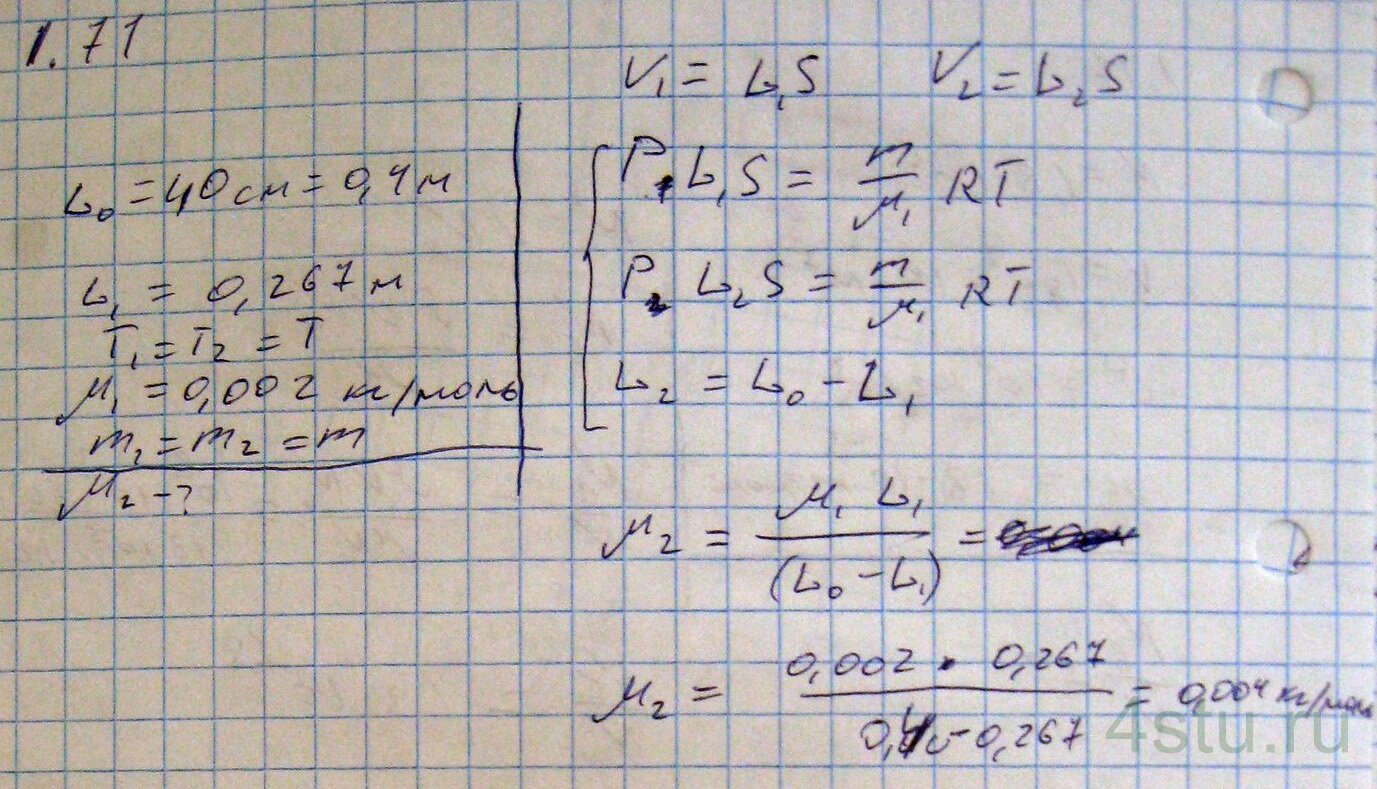 1.71
L₀ = 40 см = 0,4 м
L₁ = 0,267 м
T₁ = T₂ = T
μ₁ = 0,002 кг/моль
m₁ = m₂ = m
μ₂ - ?
V₁ = L₁S V₂ = L₂S
P₁L₁S = m/μ₁ RT
P₂ L₂S = m/μ₁ RT
L₂ = L₀ - L₁
μ₂ = μ₁ L₁/(L₀ - L₁) =
μ₂ = 0,002 · 0,267/0,4 - 0,267 = 0,004 кг/моль
4stu.ru